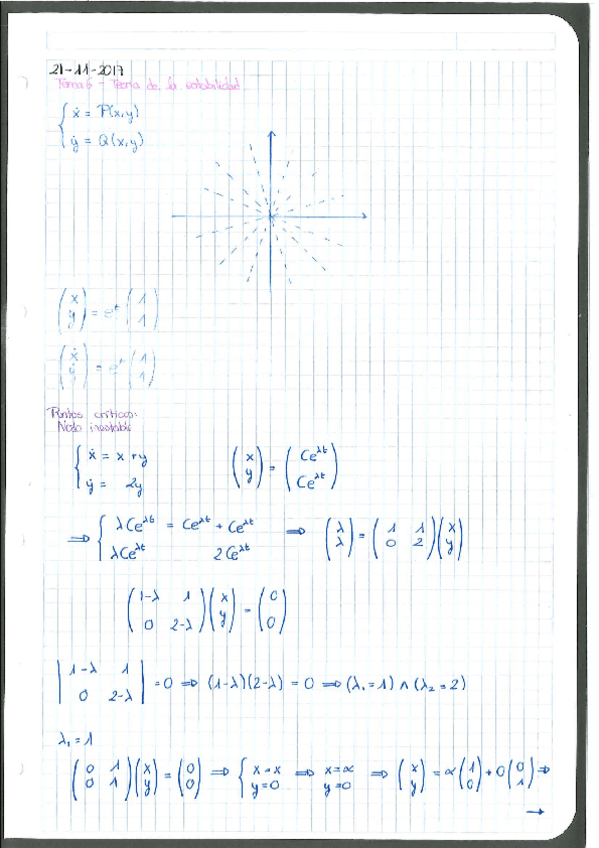 21-11-2017
Tema 6 - Teoría de la estabilidad
{ ẋ = P(x,y)
ẏ = Q(x,y)
(x y) = eᵗ (1 1)
(ẋ ẏ) = eᵗ (1 1)
Puntos críticos:
Nodo inestable
{ ẋ = x + y
ẏ = 2y
(x y) = (Ce^λt Ce^λt)
⇒ { λCe^λt = Ce^λt + Ce^λt
λCe^λt 2Ce^λt
⇒ (λ λ) = (1 1 0 2)(x y)
(1-λ 1 0 2-λ)(x y) = (0 0)
|1-λ 1 0 2-λ| = 0 ⇒ (1-λ)(2-λ) = 0 ⇒ (λ₁ = 1) ∧ (λ₂ = 2)
λ₁ = 1
(0 1 0 1)(x y) = (0 0) ⇒ { x = x y = 0 ⇒ x = α y = 0 ⇒ (x y) = α(1 0) + 0(0 1) ⇒
→